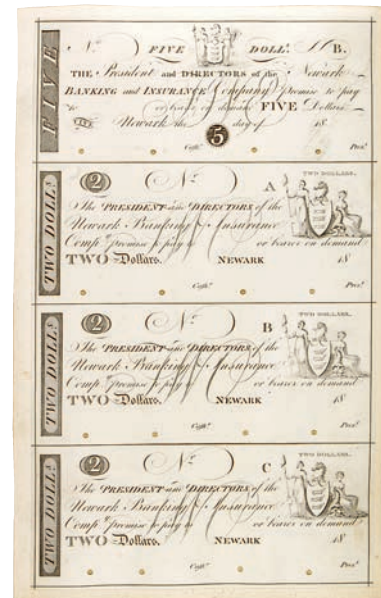 FIVE
Nº FIVE DOLLˢ. B.
THE President and DIRECTORS of the Newark
BANKING and INSURANCE Company promise to pay
to or bearer on demand FIVE Dollars.
FIVE Newark the day of 18
5
Cashʳ. Presᵗ.
TWO DOLLˢ
2 Nº A TWO DOLLARS.
The PRESIDENT and DIRECTORS of the
Newark Banking & Insurance
Compʸ. promise to pay to or bearer on demand
TWO Dollars. NEWARK 18
Cashʳ. Presᵗ.
TWO DOLLˢ
2 Nº B TWO DOLLARS.
The PRESIDENT and DIRECTORS of the
Newark Banking & Insurance
Compʸ. promise to pay to or bearer on demand
TWO Dollars. NEWARK 18
Cashʳ. Presᵗ.
TWO DOLLˢ
2 Nº C TWO DOLLARS.
The PRESIDENT and DIRECTORS of the
Newark Banking & Insurance
Compʸ. promise to pay to or bearer on demand
TWO Dollars. NEWARK 18
Cashʳ. Presᵗ.